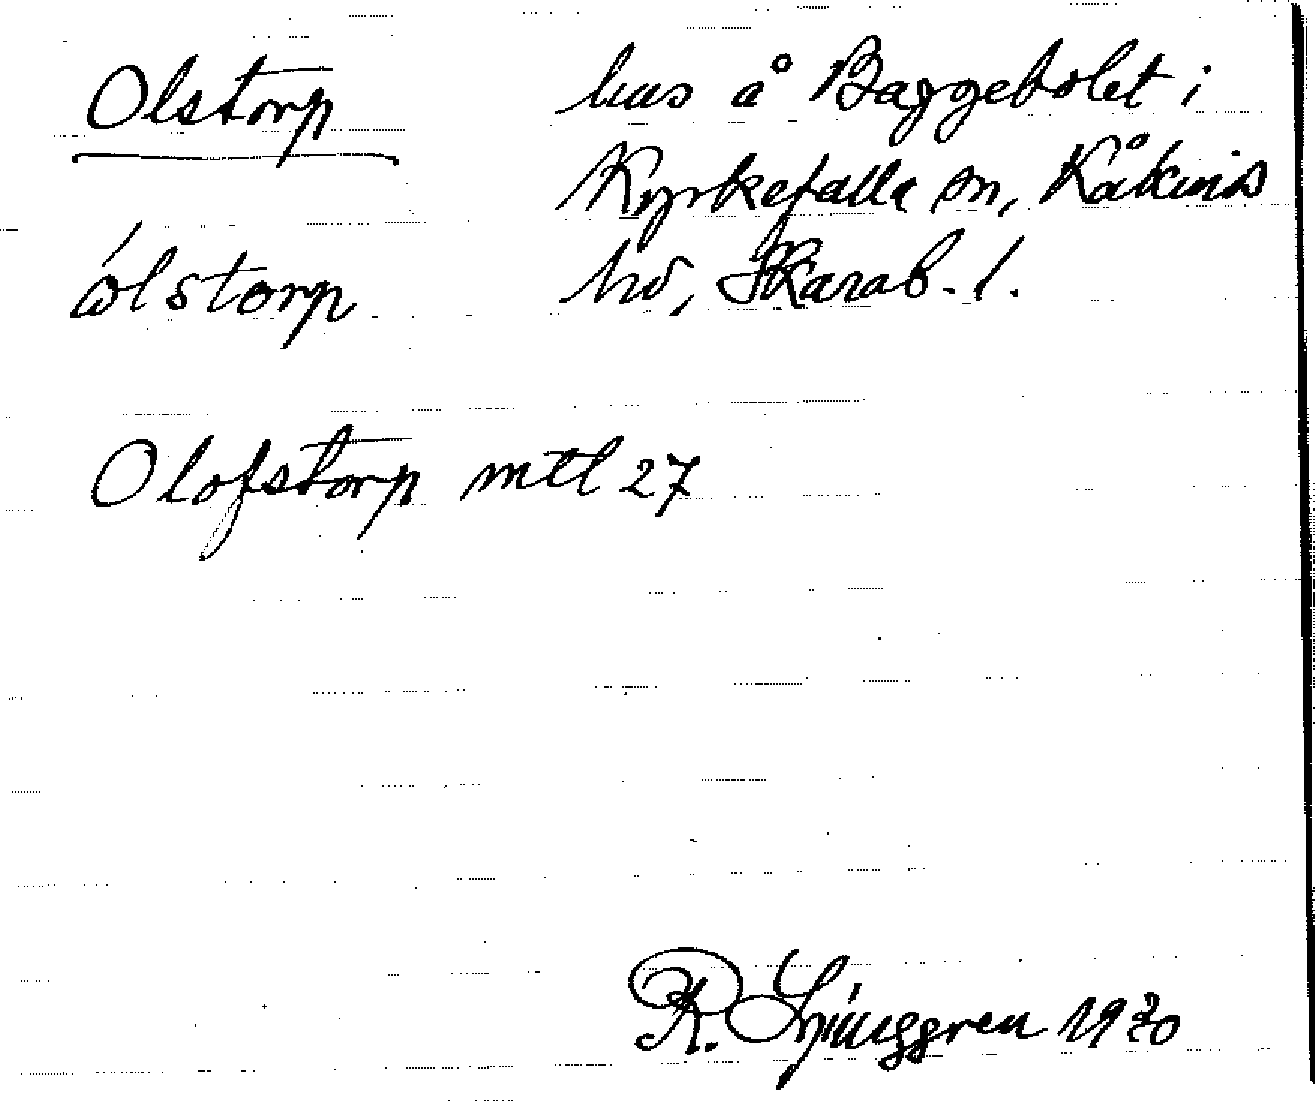 Olstorp
hus å Baggebolet i
Kyrkefalla sn, Kåkinds
hd, Skarab. l.
ólstorp
Olofstorp mtl 27
R. Ljunggren 1930